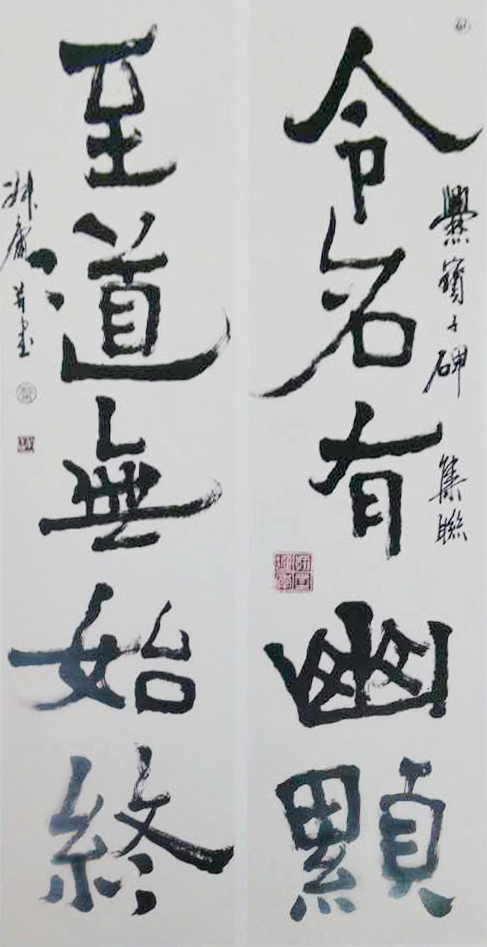 令名有幽顯
爨寶子碑 集聯
至道無始終